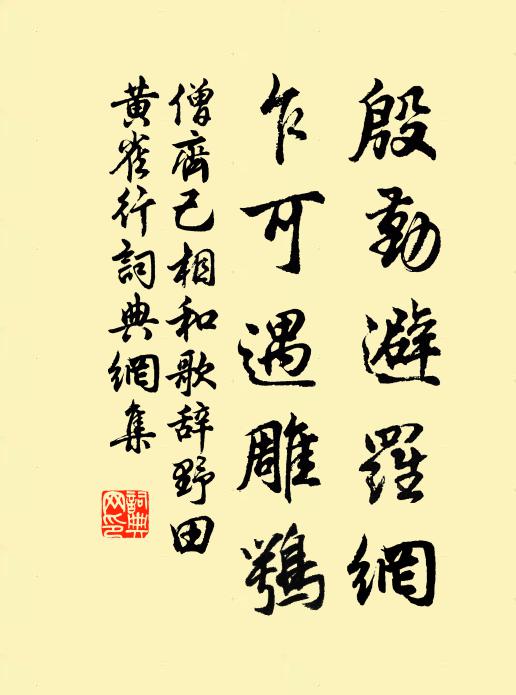 殷勤避羅網
乍可遇雕鶚
僧齊己相和歌辞野田
黄雀行詞典網集
詞典网印